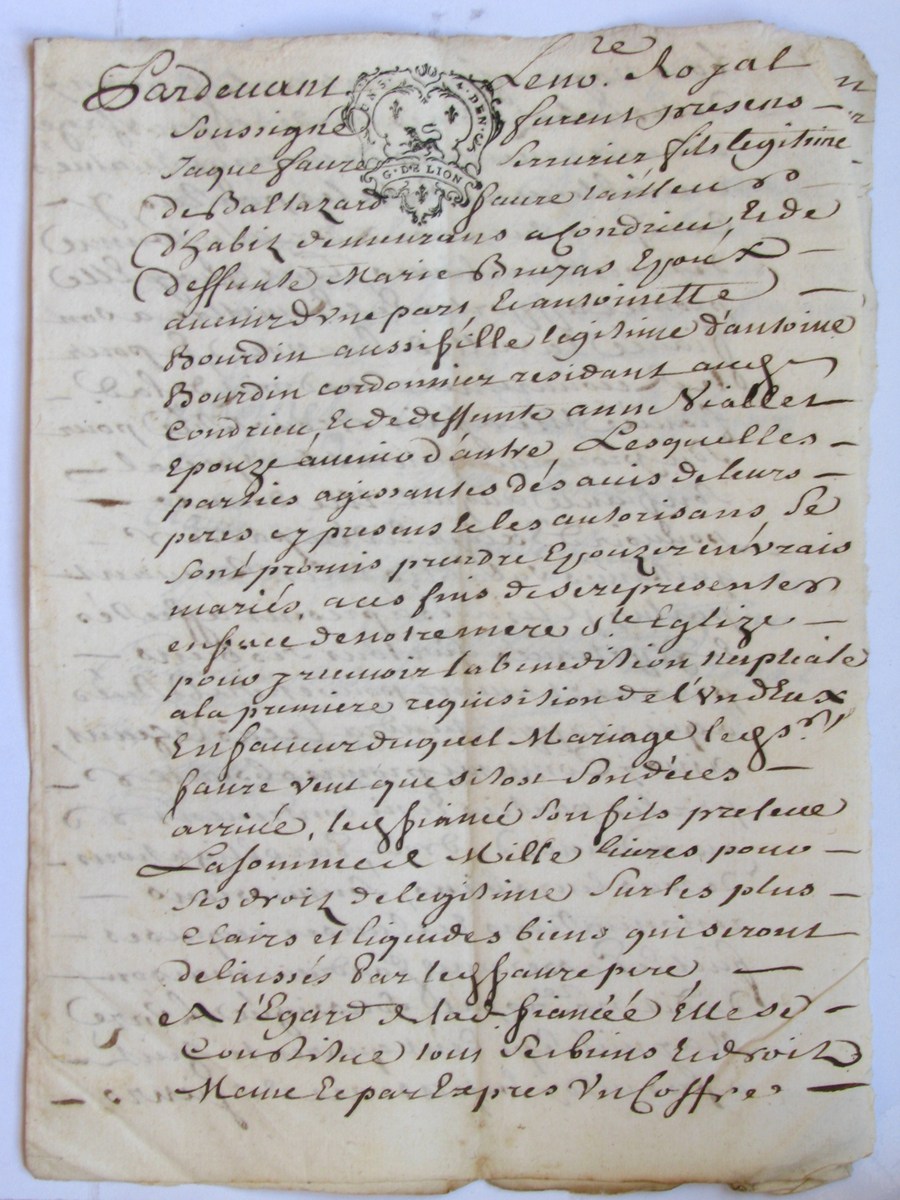 Pardevant Le no.re Royal
Soussigné furent presens
Jaque faure Serrurier fils legitime
de Baltazard faure tailleur
G. DE LION
d'habit demeurans a Condrieu, Et de
deffunte Marie Bruzas Epoux
avenir d'vne part, Et antoinette
Bourdin aussi fille legitime d'antoine
Bourdin cordonnier residant aud
Condrieu, Et de deffunte anne Viallet
Epouze avenir d'autre, Lesquelles
parties agissantes des avis de leurs
peres cy presens Et les autorisans Se
sont promis prendre Epouzer en vrais
mariés, a ces fins de se representer
en face de notre mere Ste Eglize
pour y recevoir la benedition nuptiale
a la premiere requisition de l'vn d'Eux
En faveur duquel Mariage led Sr
faure veut que sitost Son déces
arrivé, led fiancé Son fils preleve
La somme de Mille livres pour
Ses droit de legitime Sur les plus
Clairs et liquides biens qui seront
delaissés Par led faure pere
A l'Egard de lad fiancée Elle se
Constitue tous Ses biens Et droit
Meme Et par Expres vn Coffre